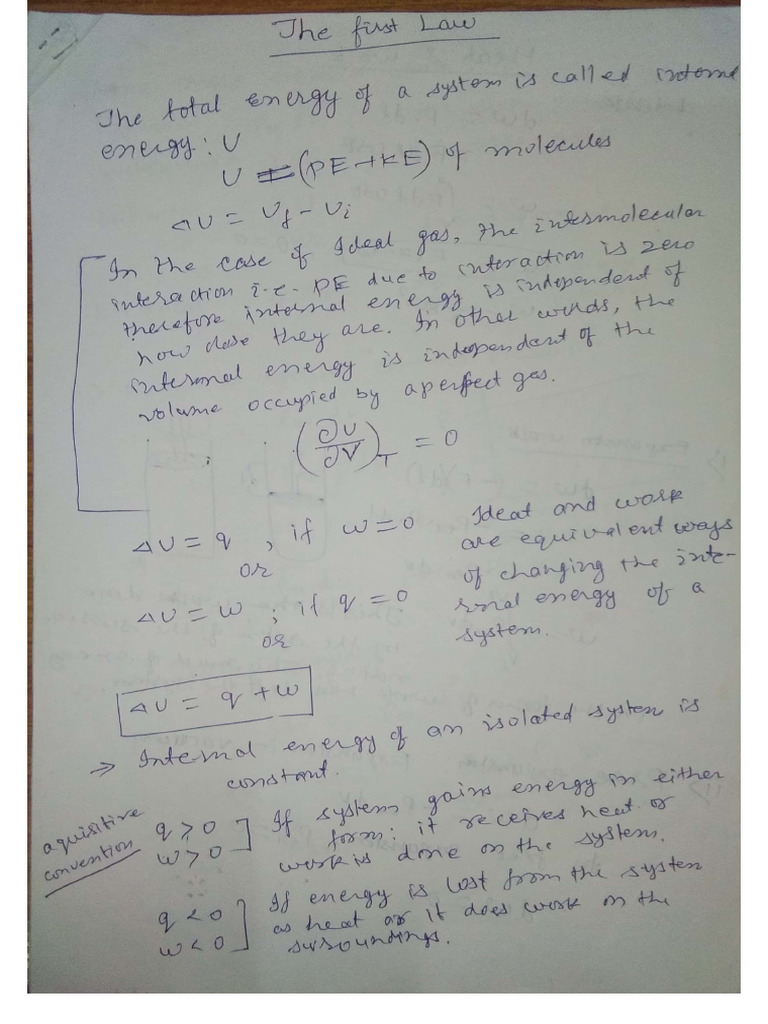 The first Law
The total energy of a system is called interna
energy: U
U = (PE+KE) of molecules
ΔU = Uf - Ui
In the case of Ideal gas, the intermolecular
interaction i.e. PE due to interaction is zero
therefore internal energy is independent of
how close they are. In other words, the
internal energy is independent of the
volume occupied by a perfect gas.
(∂U/∂V)T = 0
ΔU = q , if w=0
or
ΔU = w ; if q = 0
or
Ideat and work
are equivalent ways
of changing the inte-
rnal energy of a
system.
ΔU = q + w
→ Internal energy of an isolated system is
constant.
aquisitive
convention
q > 0
w > 0
If system gains energy in either
form: it receives heat or
work is done on the system.
q < 0
w < 0
If energy is lost from the system
as heat or it does work on the
surroundings.